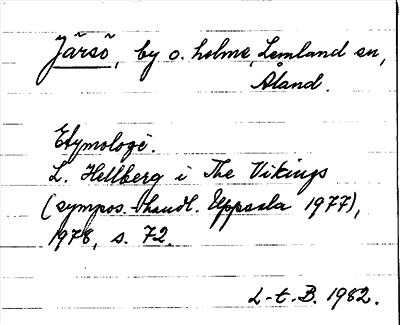 Järsö, by o. holme, Lemland sn,
Åland.
Etymologi.
L. Hellberg i The Vikings
(sympos. handl. Uppsala 1977),
1978, s. 72.
L-t. B. 1982.